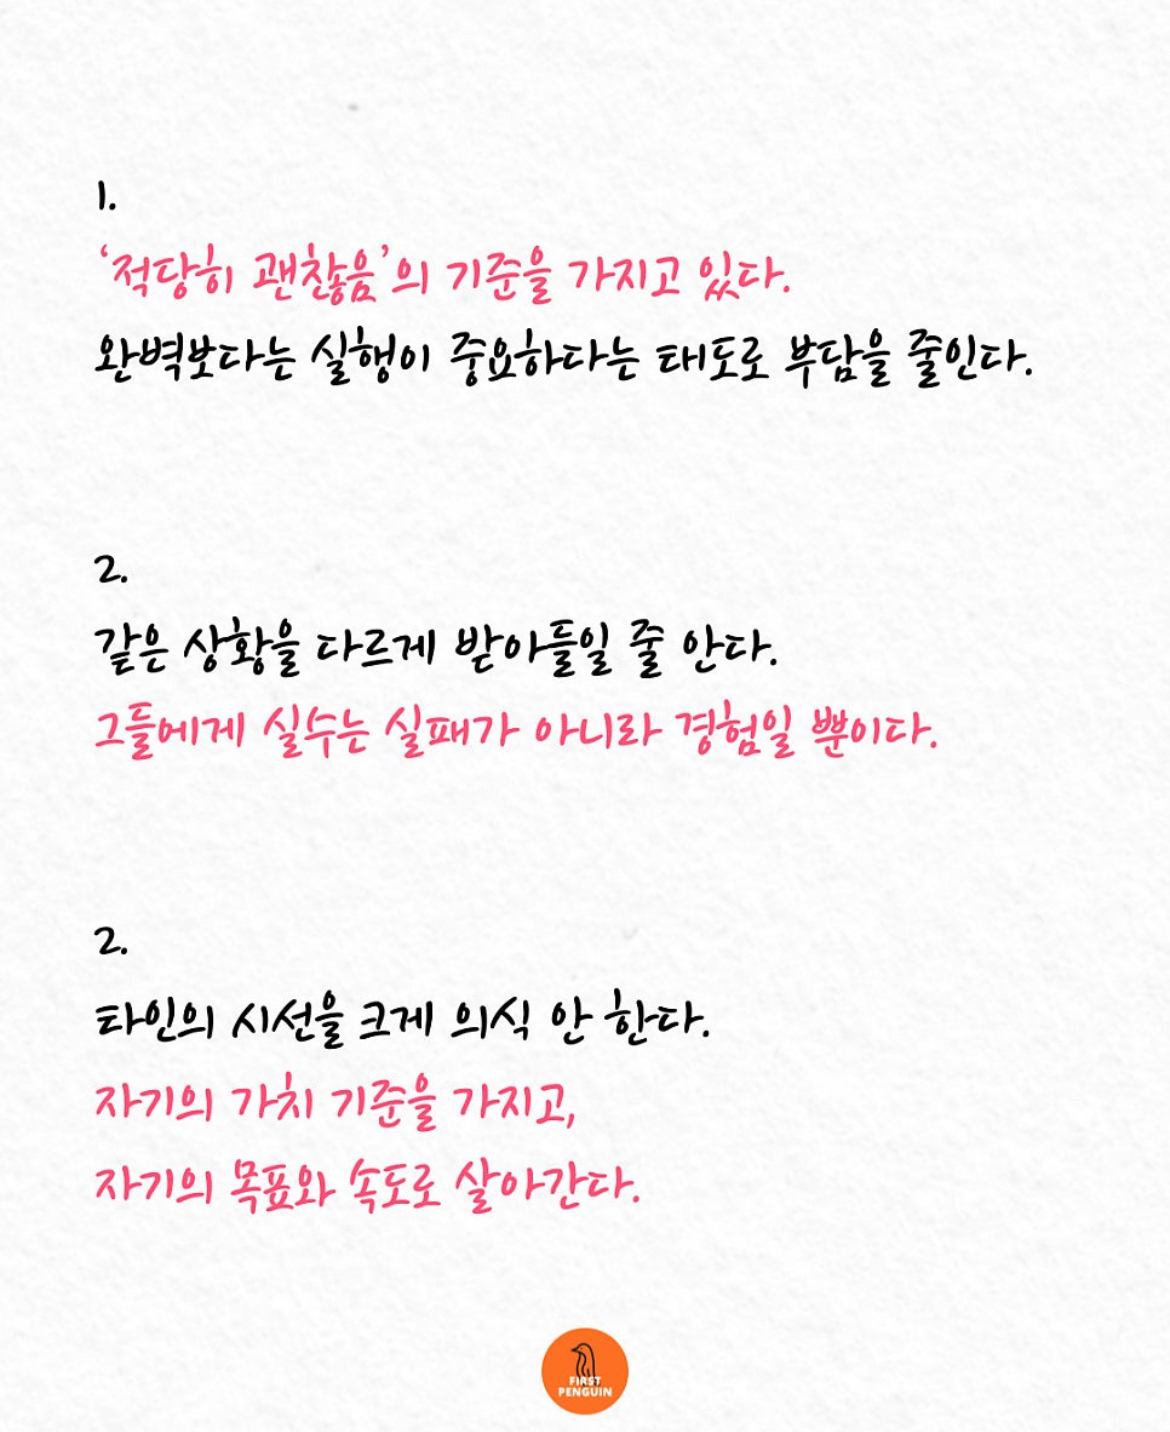 1.
‘적당히 괜찮음’의 기준을 가지고 있다.
완벽보다는 실행이 중요하다는 태도로 부담을 줄인다.
2.
같은 상황을 다르게 받아들일 줄 안다.
그들에게 실수는 실패가 아니라 경험일 뿐이다.
2.
타인의 시선을 크게 의식 안 한다.
자기의 가치 기준을 가지고,
자기의 목표와 속도로 살아간다.
FIRST
PENGUIN